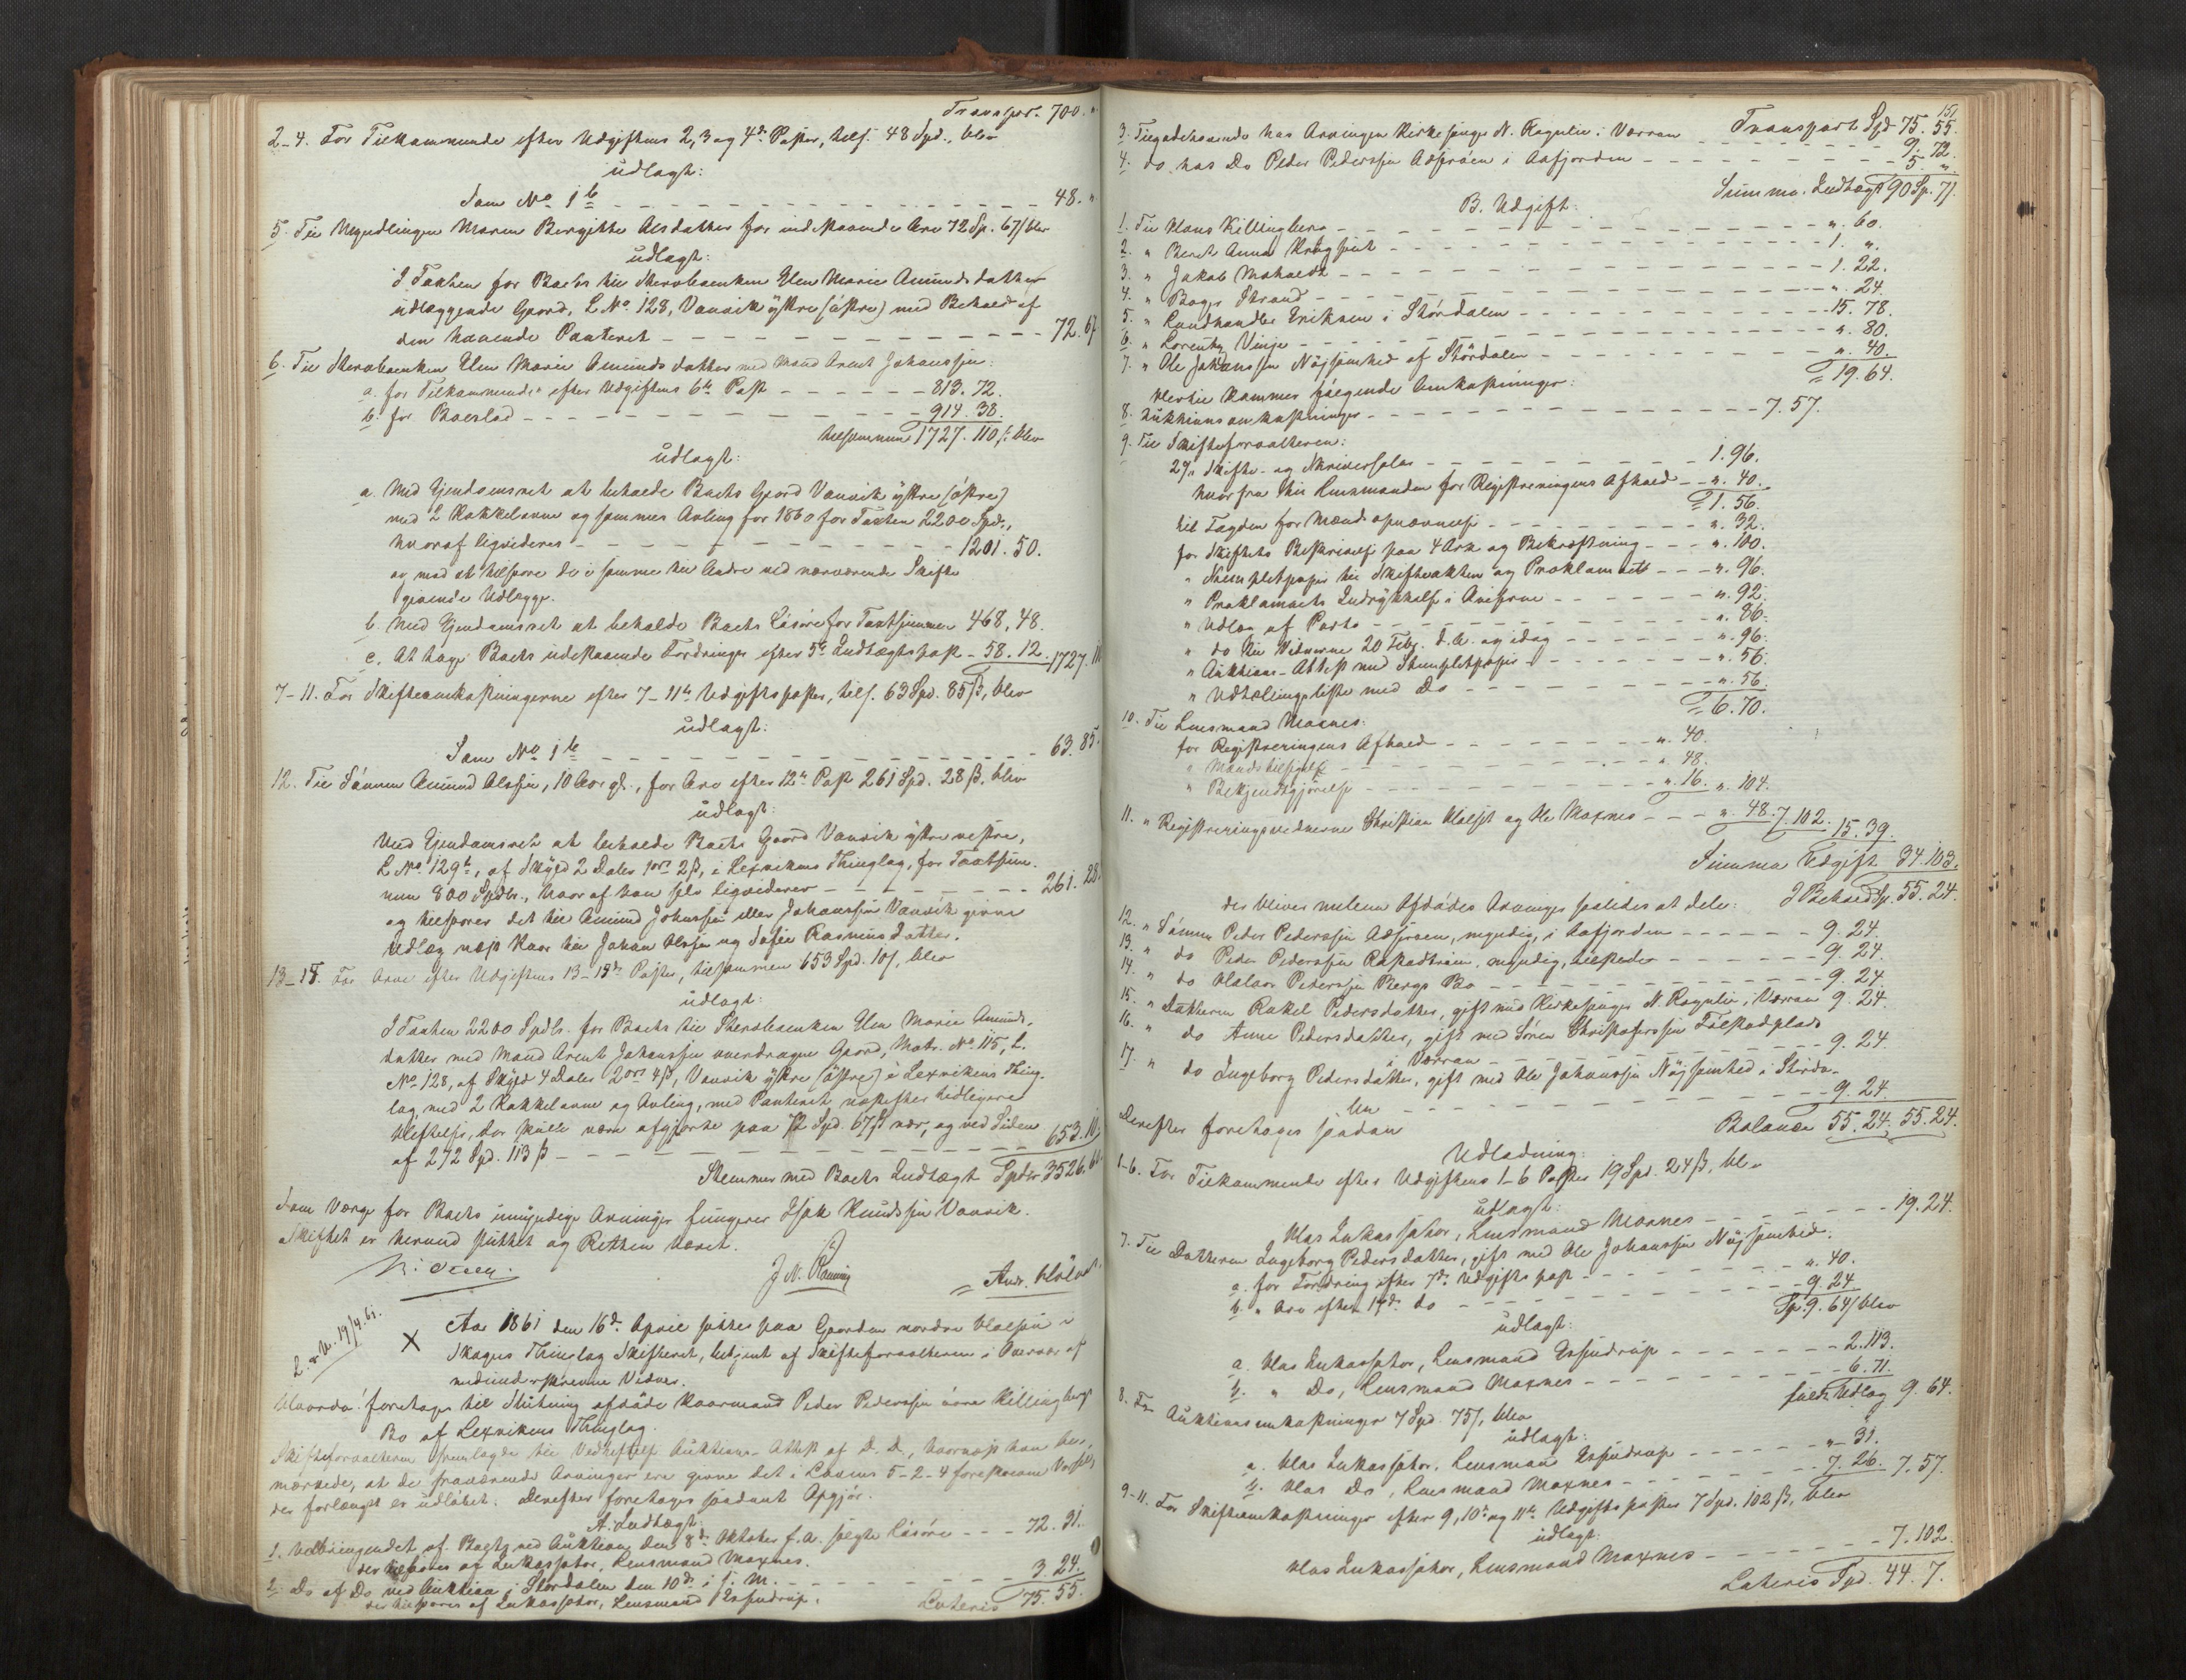 Transport. 700. "
2-4. For Tilkommende efter Udgiftens 2, 3 og 4de Poster, tils. 48 Spd., blev
udlagt:
Som No 1 b 48. "
5. Til Myndlingen Maren Bergitte Olsdatter for indestaaende Arv 72 Sp. 67 ß blev
udlagt:
I Taxten for Boets til Stervboenken Elen Marie Amundsdatter
udlæggende Gaard, L. No. 128, Vanvik ystre (østre) med Behold af
den havende Panteret 72. 67
6. Til Stervboenken Elen Marie Amundsdatter med Mand Arent Johanssen:
a. for Tilkommende efter Udgiftens 6te Post 813. 72.
b. for Boeslod 914. 38.
tilsammen 1727. 110 ß blev
udlagt:
a. Med Eiendomsret at beholde Boets Gaard Vanvik ystre (østre)
med 2 Kakkelovne og sammes Avling for 1860 for Taxten 2200 Spd.,
hvoraf ligvideres 1201. 50.
og mod at tilsvare de i samme til Andre ved nærværende Skifte
givende Udlægge.
b. Med Eiendomsret at beholde Boets Løsøre for Taxtsummen 468. 48.
c. At tage Boets udestaaende Fordringer efter 5te Indtægtspost 58. 12. 1727. 110
7-11. For Skifteomkostningerne efter 7-11te Udgiftsposter, tils. 63 Spd. 85 ß, blev
udlagt:
Som No 1 b 63. 85.
12. Til Sønnen Amund Olssen, 10 Aar gl., for Arv efter 12te Post 261 Spd. 28 ß. blev
udlagt:
Med Eiendomsret at beholde Boets Gaard Vanvik ystre vestre,
L. No. 129b, af Skyld 2 Daler 1 ort 2 ß, i Lexvikens Thinglag, for Taxtsum-
men 800 Spdlr., hvoraf han selv ligviderer 261. 28.
og tilsvarer det til Amund Johnssen eller Johanssen Vanvik givne
Udlæg næst Kaar til Johan Olssen og Sofie Rasmusdatter.
13-18. For Arve efter Udgiftens 13-18de Poster, tilsammen 653 Spd. 10 ß, blev
udlagt:
I Taxten 2200 Spdlr. for Boets til Stervboenken Elen Marie Amunds-
datter med Mand Arent Johanssen overdragne Gaard, Matr. No. 115, L.
No. 128, af Skyld 4 Daler 2 ort 4 ß, Vanvik ystre (østre) i Lexvikens Thing-
lag med 2 Kakkelovne og Avling, med Panteret næstefter tidligere
Heftelse, der skulle være afgjorte paa 72 Spd. 67 ß nær, og ved Siden
af 272 Spd. 113 ß 653. 10.
Stemmer med Boets Indtægt Spdlr. 3526.
Som Værge for Boets umyndige Arvinger fungerer Isak Knudssen Vanvik.
Skiftet er herved sluttet og Retten hævet.
J. N. Ranning
L. v. U. 19/4. 61.
X Aar 1861 den 16de April sattes paa Gaarden nordre Halsen i
Skogns Thinglag Skifteret, betjent af Skifteforvalteren i Overvær af
medunderskrevne Vidner.
Hvorda! foretoges til Slutning afdøde Kaarmand Peder Pederssen øvre Killingbergs
Bo af Lexvikens Thinglag.
Skifteforvalteren fremlagde til Vedheftelse Auktions-Attest af D. D., hvornæst han be-
mærkede, at de fraværende Arvinger ere givne det i Lovens 5-2-4 foreskrevne Varsel,
der forlængst er udløbet. Derefter foretages saadant Opgjør.
A. Indtægt:
1. Udbringendet af Boets ved Auktion den 8de Oktober f. A. solgte Løsøre 72. 31.
der tilsvares af Inkassator, Lensmand Moxnes.
2. Do af Do ved Auktion i Stordalen den 10de i s. M. 3. 24.
der tilsvares af Inkassator, Lensmand Espndrup.
Lateris 75. 55.
151
Transport Spd 75. 55.
3. Tilgodehavende hos Arvingen Kirkesanger N. Rognlie i Værran 9. 72.
4. do hos Do Peder Pederssen Adsraaen i Aafjorden 5 "
Summa. Indtægt 90 Sp. 71.
B. Udgift:
1. Til Hans Killingberg ". 60.
2. " Beret Anna Krogseit 1. ".
3. " Jakob Moholdt 1. 22.
4. " Bager Strand ". 24.
5. " Landhandler Eriksen i Størdalen 15. 78.
6. " Lorents Vinje ". 80.
7. " Ole Johanssen Nøisomhed af Stördalen ". 40.
19. 64.
Hertil kommer følgende Omkostninger:
8. Auktionsomkostninger 7. 57.
9. Til Skifteforvalteren:
2 % Skifte- og Skriversalær 1. 96.
hvorfra til Lensmanden for Registreringens Afhold ". 40.
1. 56.
til Fogden for Mandsopnævnelse ". 32.
for Skiftets Beskrivelse paa 4 Ark og Bekræftning ". 100.
" Stempletpapir til Skifteakten og Proklamaet ". 96.
" Proklamaets Indrykkelse i Aviserne ". 92.
" Udlæg af Porto ". 86.
" do til Vidnerne 20 Febr. d. A. og idag ". 96.
" Auktions-Attest med Stempletpapir ". 56.
" Udtællingsliste med Do ". 56.
6. 70.
10. Til Lensmand Moxnes:
for Registreringens Afhold ". 40.
" Mandstilsigelse ". 48.
" Bekjendtgjørelse ". 16. ". 104.
11. " Registreringsvidnerne Christian Holst og Ole Moxnes ". 48. 7. 102. 15. 39.
Summa Udgift 34. 103.
I Behold Sp. 55. 24.
der bliver mellem Afdødes Arvinger saaledes at dele:
12. " Sønnen Peder Pederssen Adsraaen, myndig, i Aafjorden 9. 24.
13. " do Peder Pederssen, myndig, tilstede 9. 24.
14. " do Halvor Pederssen Bergs Bo 9. 24.
15. " Datteren Rakel Pedersdatter, gift med Kirkesanger N. Rognlie i Værran 9. 24.
16. " do Anne Pedersdatter, gift med Sören Christofferssen Fölstadplads
i Værran 9. 24.
17. " do Ingeborg Pedersdatter, gift med Ole Johanssen Nøisomhed i Størda-
len 9. 24.
Balance 55. 24. 55. 24.
Derefter foretages saadan
Udlodning:
1-6. For Tilkommende efter Udgiftens 1-6 Poster 19 Spd. 24 ß, blev
udlagt:
Hos Inkassator, Lensmand Moxnes 19. 24.
7. Til Datteren Ingeborg Pedersdatter, gift med Ole Johanssen Nøisomhed:
a. for Fordring efter 7de Udgiftspost ". 40.
b. " Arv efter 17de do 9. 24
Sp. 9. 64 ß blev
udlagt:
a. Hos Inkassator, Lensmand Espndrup 2. 113.
b. " Do, Lensmand Moxnes 6. 71.
fuldt Udlæg 9. 64.
8. For Auktionsomkostninger 7 Spd. 75 ß, blev
udlagt:
a. Hos Inkassator, Lensmand Espndrup ". 31.
b. Hos Do, Lensmand Moxnes 7. 26. 7. 57.
9-11. For Skifteomkostninger efter 9, 10de og 11te Udgiftsposter 7 Spd. 102 ß, blev
udlagt:
Hos Inkassator, Lensmand Moxnes 7. 102.
Lateris Spd. 44. 7.